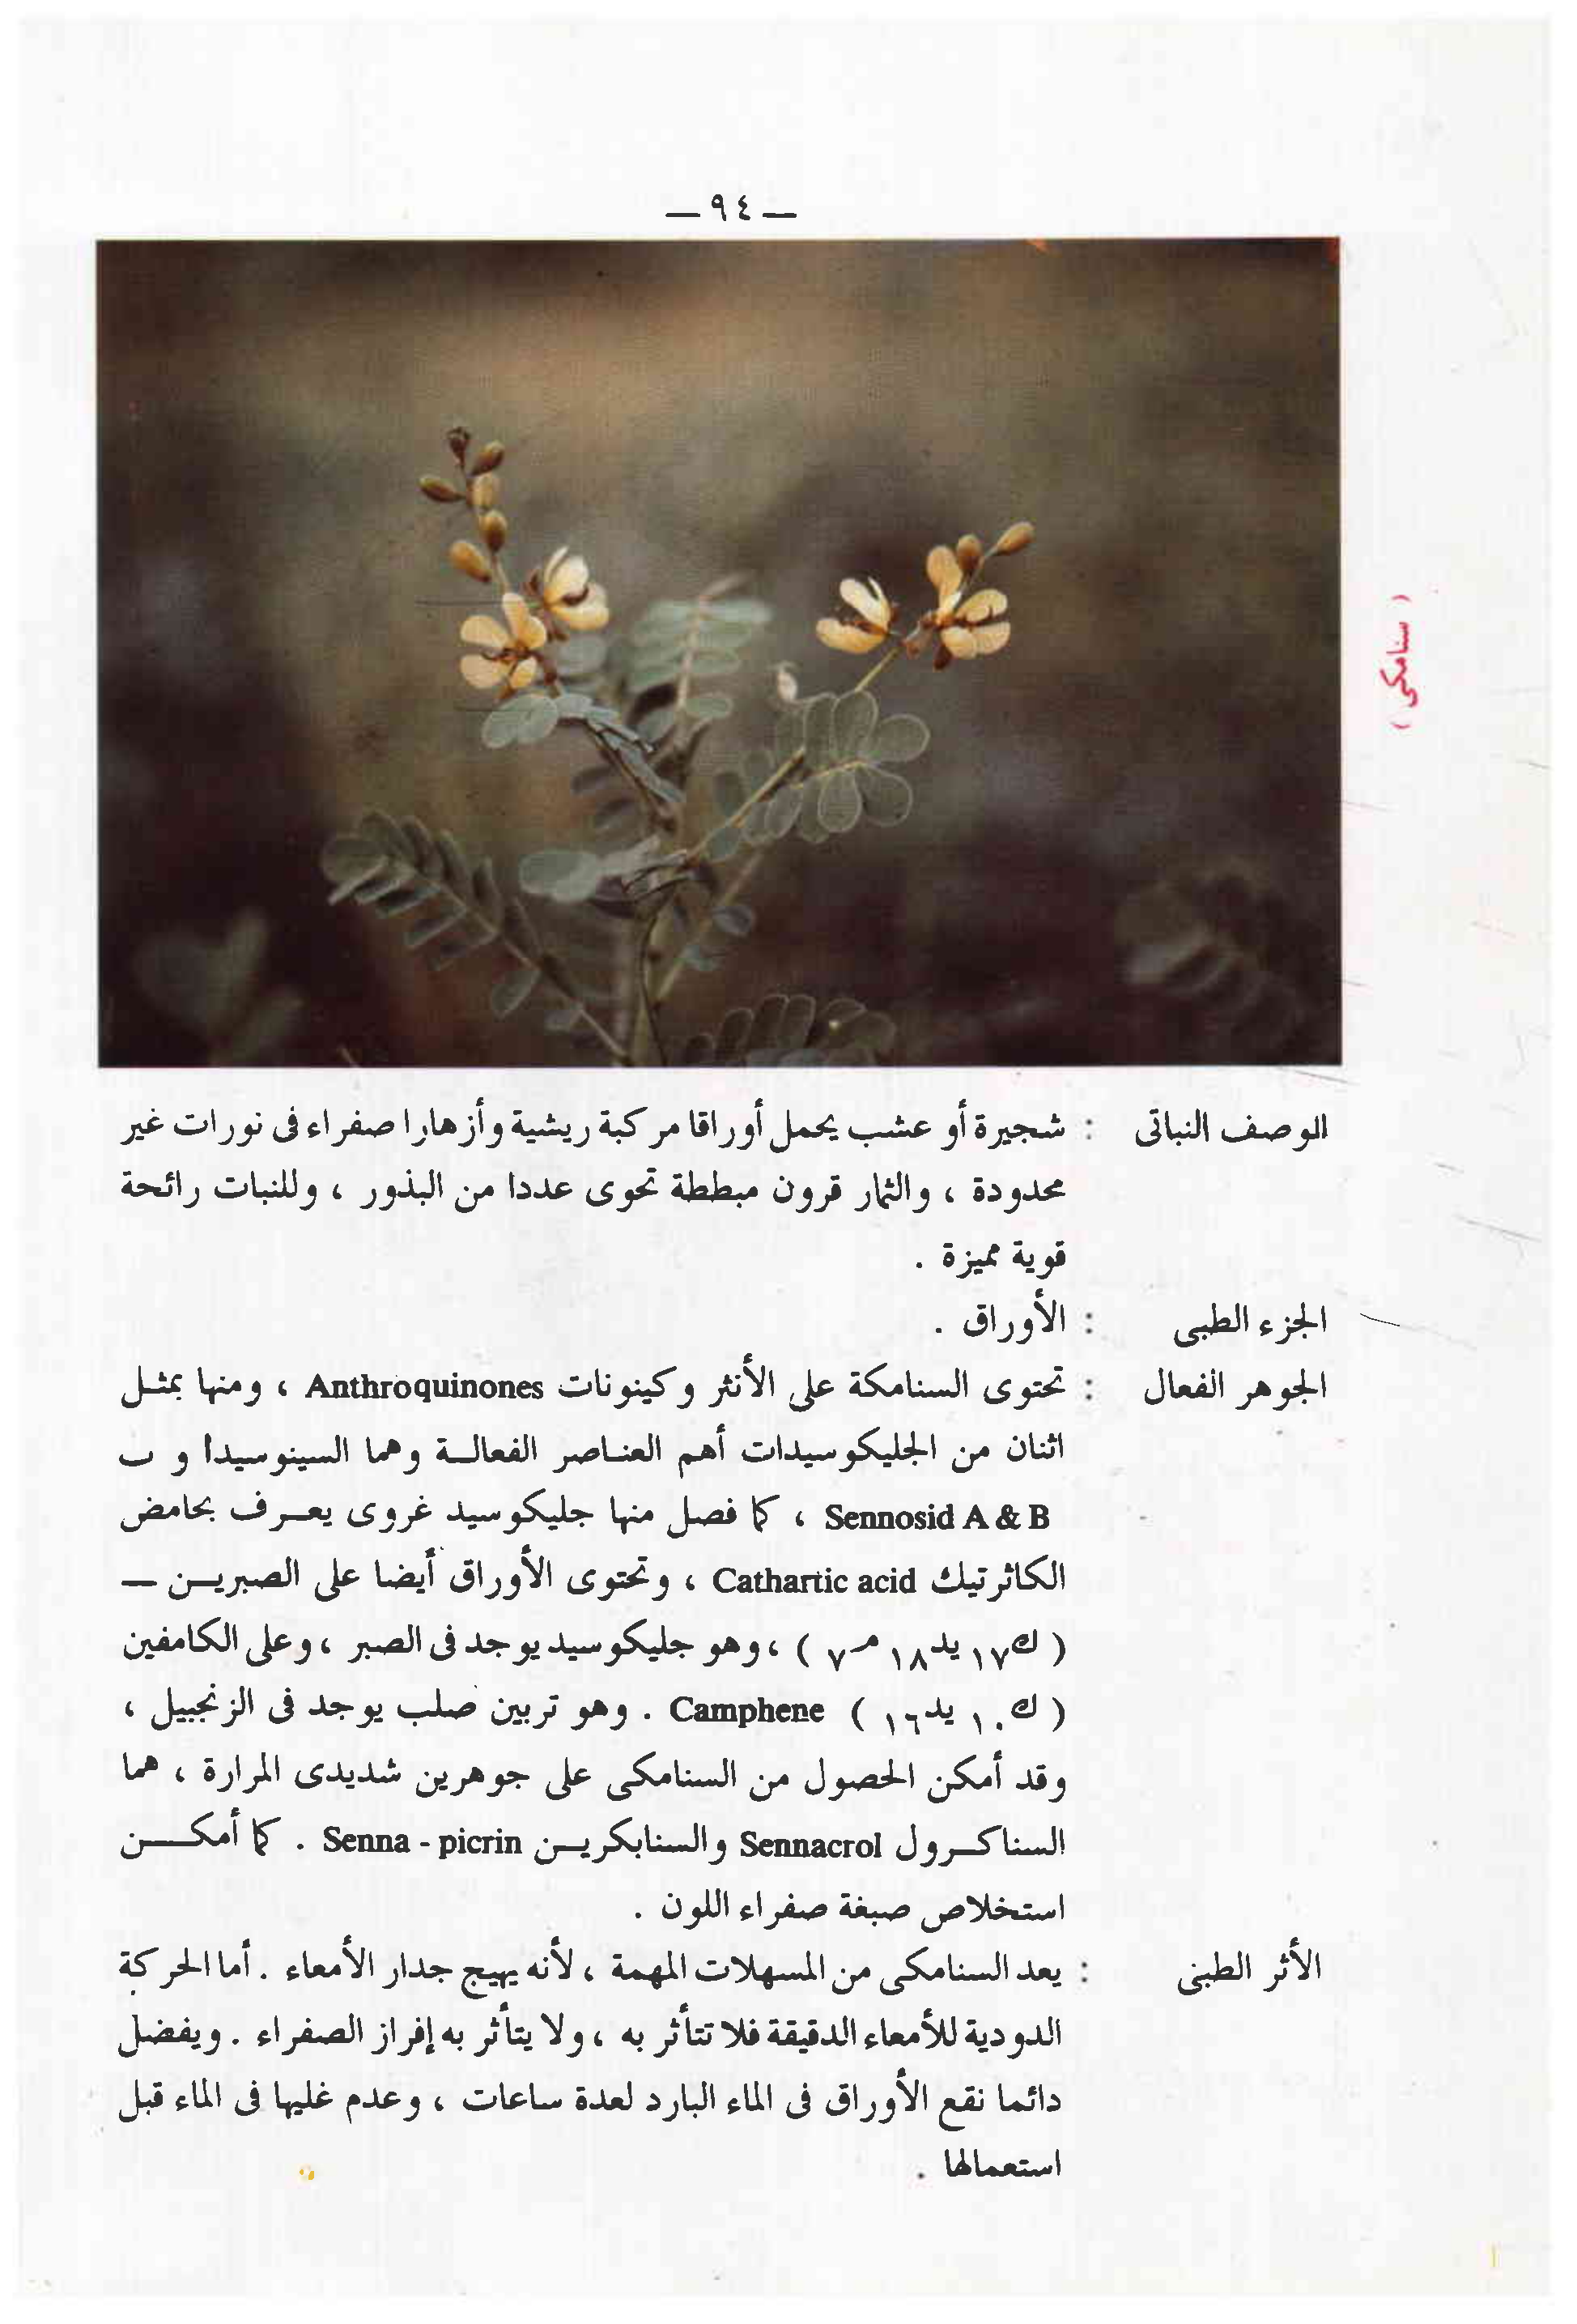 — ٩٤ —
( سنامكى )
الوصف النباتى : شجيرة أو عشب يحمل أوراقا مركبة ريشية وأزهارا صفراء فى نورات غير
محدودة ، والثمار قرون مبططة تحوى عددا من البذور ، وللنبات رائحة
قوية مميزة .
الجزء الطبى : الأوراق .
الجوهر الفعال : تحتوى السنامكة على الأنثر وكينونات Anthroquinones ، ومنها يمثـل
اثنان من الجليكوسيدات أهم العنـاصر الفعالــة وهما السينوسيدأ و ب
Sennosid A & B ، كما فصل منها جليكوسيد غروى يعــرف بحامض
الكاثرتيك Cathartic acid ، وتحتوى الأوراق أيضا على الصبريــن —
( ك١٧ يد١٨ م٧ ) ، وهو جليكوسيد يوجد فى الصبر ، وعلى الكامفين
( ك١٠ يد١٦ ) Camphene . وهو تربين صلب يوجد فى الزنجبيل ،
وقد أمكن الحصول من السنامكى على جوهرين شديدى المرارة ، هما
السناكــرول Sennacrol والسنابكريــن Senna - picrin . كما أمكــــن
استخلاص صبغة صفراء اللون .
الأثر الطبى : يعد السنامكى من المسهلات المهمة ، لأنه يهيج جدار الأمعاء . أما الحركة
الدودية للأمعاء الدقيقة فلا تتأثر به ، ولا يتأثر به إفراز الصفراء . ويفضل
دائما نقع الأوراق فى الماء البارد لعدة ساعات ، وعدم غليها فى الماء قبل
استعمالها .